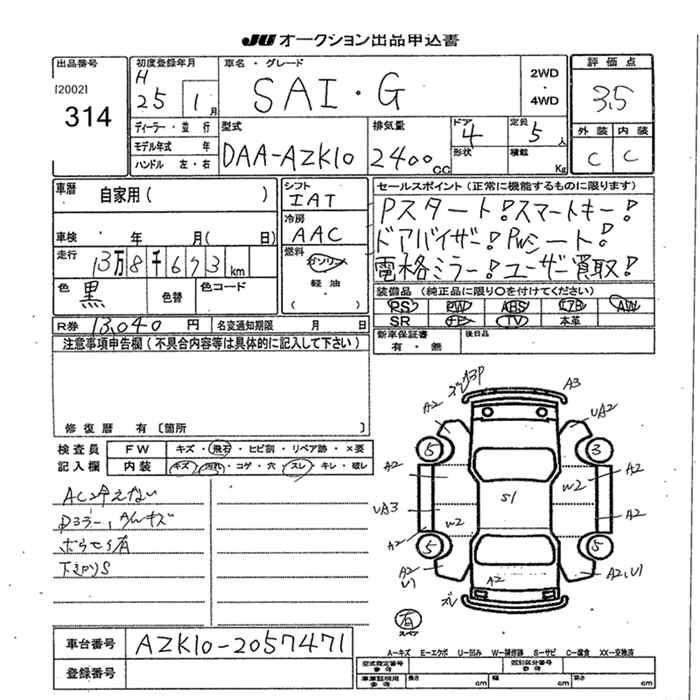 JU オークション出品申込書
出品番号 初度登録年月 車名・グレード 評価点
[2002] H 2WD
314 25 1月 SAI・G ・ 3.5
4WD
ディーラー・並行 型式 排気量 ドア 4 定員 5人 外装 内装
モデル年式 年 DAA-AZK10 2400cc 形状 積載 Kg C C
ハンドル 左・右
車歴 自家用( ) シフト IAT セールスポイント(正常に機能するものに限ります)
冷房 AAC Pスタート!スマートキー!
車検 年 月( 日) ドアバイザー!PWシート!
走行 13万8千673km 燃料 ガソリン 電格ミラー!ユーザー買取!
軽油
色 黒 色替 色コード ( ) 装備品(純正品に限り○を付けてください)
PS PW ABS エアB AW
R券 13,040円 名変通知期限 月 日 SR TV 本革
注意事項申告欄(不具合内容等は具体的に記入して下さい) 新車保証書 後日品
有・無
修復歴 有〔箇所 〕
検査員 FW キズ・飛石・ヒビ割・リペア跡・×要
記入欄 内装 キズ・汚れ・コゲ・穴・スレ・キレ・破レ
AC冷えない
下廻りS
A3P A3
A2 UA2
5 3
A2 W2 A2
S1
UA3 W2 A2
A2
5 5
A2 U1 A2 A2,U1
有
スペア
車台番号 AZK10-2057471
登録番号
A-キズ E-エクボ U-凹み W-補修跡 S-サビ C-腐食 XX-交換済
型式指定番号 参考 類別区分番号 参考
車庫証明用 参考 長さ cm 幅 cm 高さ cm